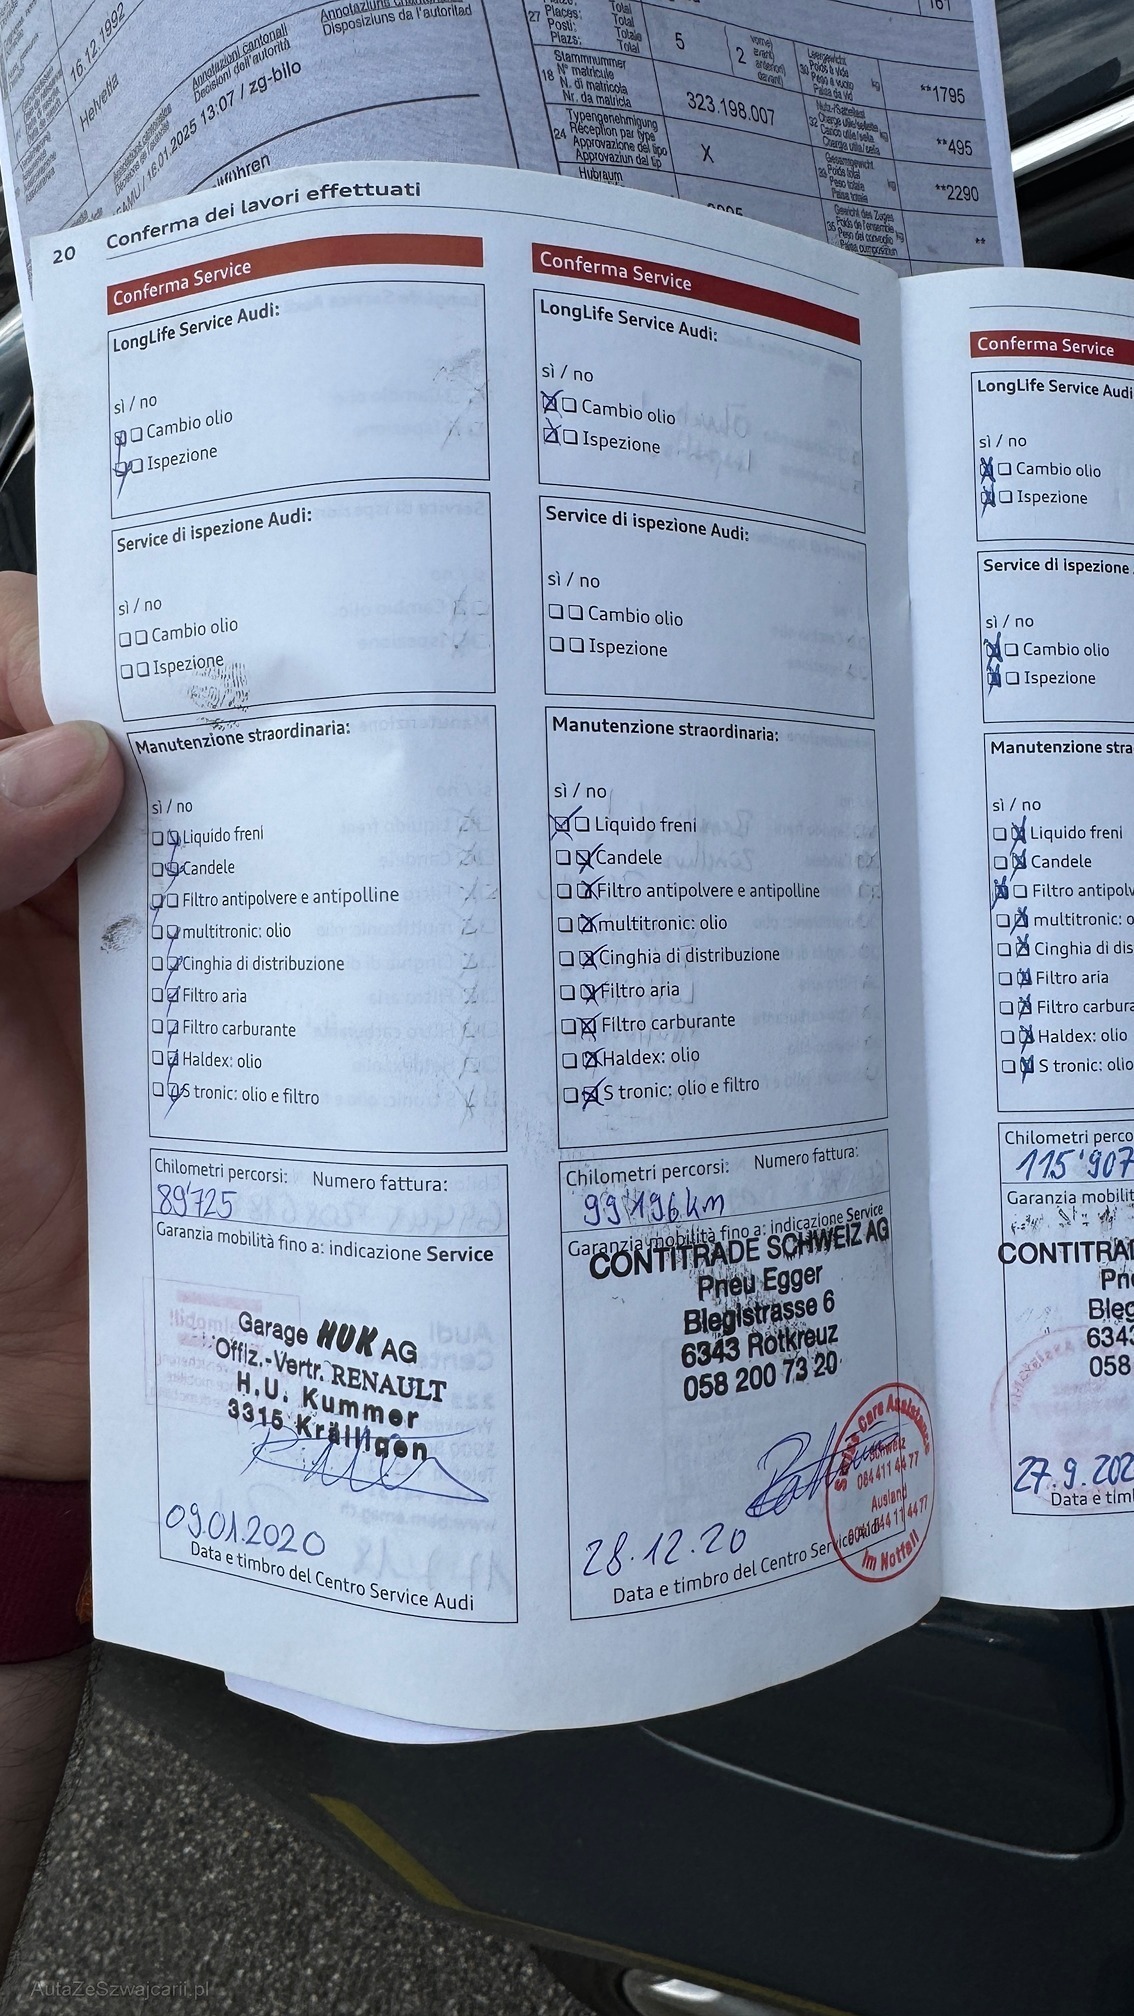 16.12.1992
Helvetia
Annotazioni cantonali
Decisioni dell'autorità
Disposiziuns da l'autoritad
16.01.2025 13:07 / zg-bilo
27 Places: Total
Posti: Totale
Plazs: Total
5
2
161
Stammnummer
18 N° matricule
N. di matricola
Nr. da matricla
323.198.007
Typengenehmigung
24 Réception par type
Approvazione del tipo
Approvaziun dal tip
X
Hubraum
Leergewicht
30 Poids à vide kg
Peso a vuoto
Paisa da vid
**1795
**495
Gesamtgewicht
33 Poids total kg
Peso totale
Paisa totala
**2290
Gewicht des Zuges
35 Poids de l'ensemble kg
**
20 Conferma dei lavori effettuati
Conferma Service
LongLife Service Audi:
sì / no
Cambio olio
Ispezione
Service di ispezione Audi:
sì / no
Cambio olio
Ispezione
Manutenzione straordinaria:
sì / no
Liquido freni
Candele
Filtro antipolvere e antipolline
multitronic: olio
Cinghia di distribuzione
Filtro aria
Filtro carburante
Haldex: olio
S tronic: olio e filtro
Chilometri percorsi: Numero fattura:
89'725
Garanzia mobilità fino a: indicazione Service
Garage HUK AG
Offiz.-Vertr. RENAULT
H.U. Kummer
3315 Kräiligen
09.01.2020
Data e timbro del Centro Service Audi
Conferma Service
LongLife Service Audi:
sì / no
Cambio olio
Ispezione
Service di ispezione Audi:
sì / no
Cambio olio
Ispezione
Manutenzione straordinaria:
sì / no
Liquido freni
Candele
Filtro antipolvere e antipolline
multitronic: olio
Cinghia di distribuzione
Filtro aria
Filtro carburante
Haldex: olio
S tronic: olio e filtro
Chilometri percorsi: Numero fattura:
99'196km
Garanzia mobilità fino a: indicazione Service
CONTITRADE SCHWEIZ AG
Pneu Egger
Blegistrasse 6
6343 Rotkreuz
058 200 73 20
Schweiz
Ausland
Im Notfall
28.12.20
Data e timbro del Centro Service Audi
Conferma Service
LongLife Service Audi
sì / no
Cambio olio
Ispezione
Service di ispezione
sì / no
Cambio olio
Ispezione
Manutenzione stra
sì / no
Liquido freni
Candele
Filtro antipolv
multitronic: o
Cinghia di dis
Filtro aria
Filtro carbura
Haldex: olio
S tronic: olio
Chilometri perco
115'907
Garanzia mobilit
CONTITRA
Pn
Bleg
634
058
27.9.202
Data e tim
AutaZeSzwajcarii.pl